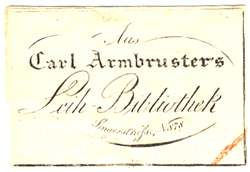 Aus
Carl Armbruster's
Leih-Bibliothek
Singerstraße, N.878